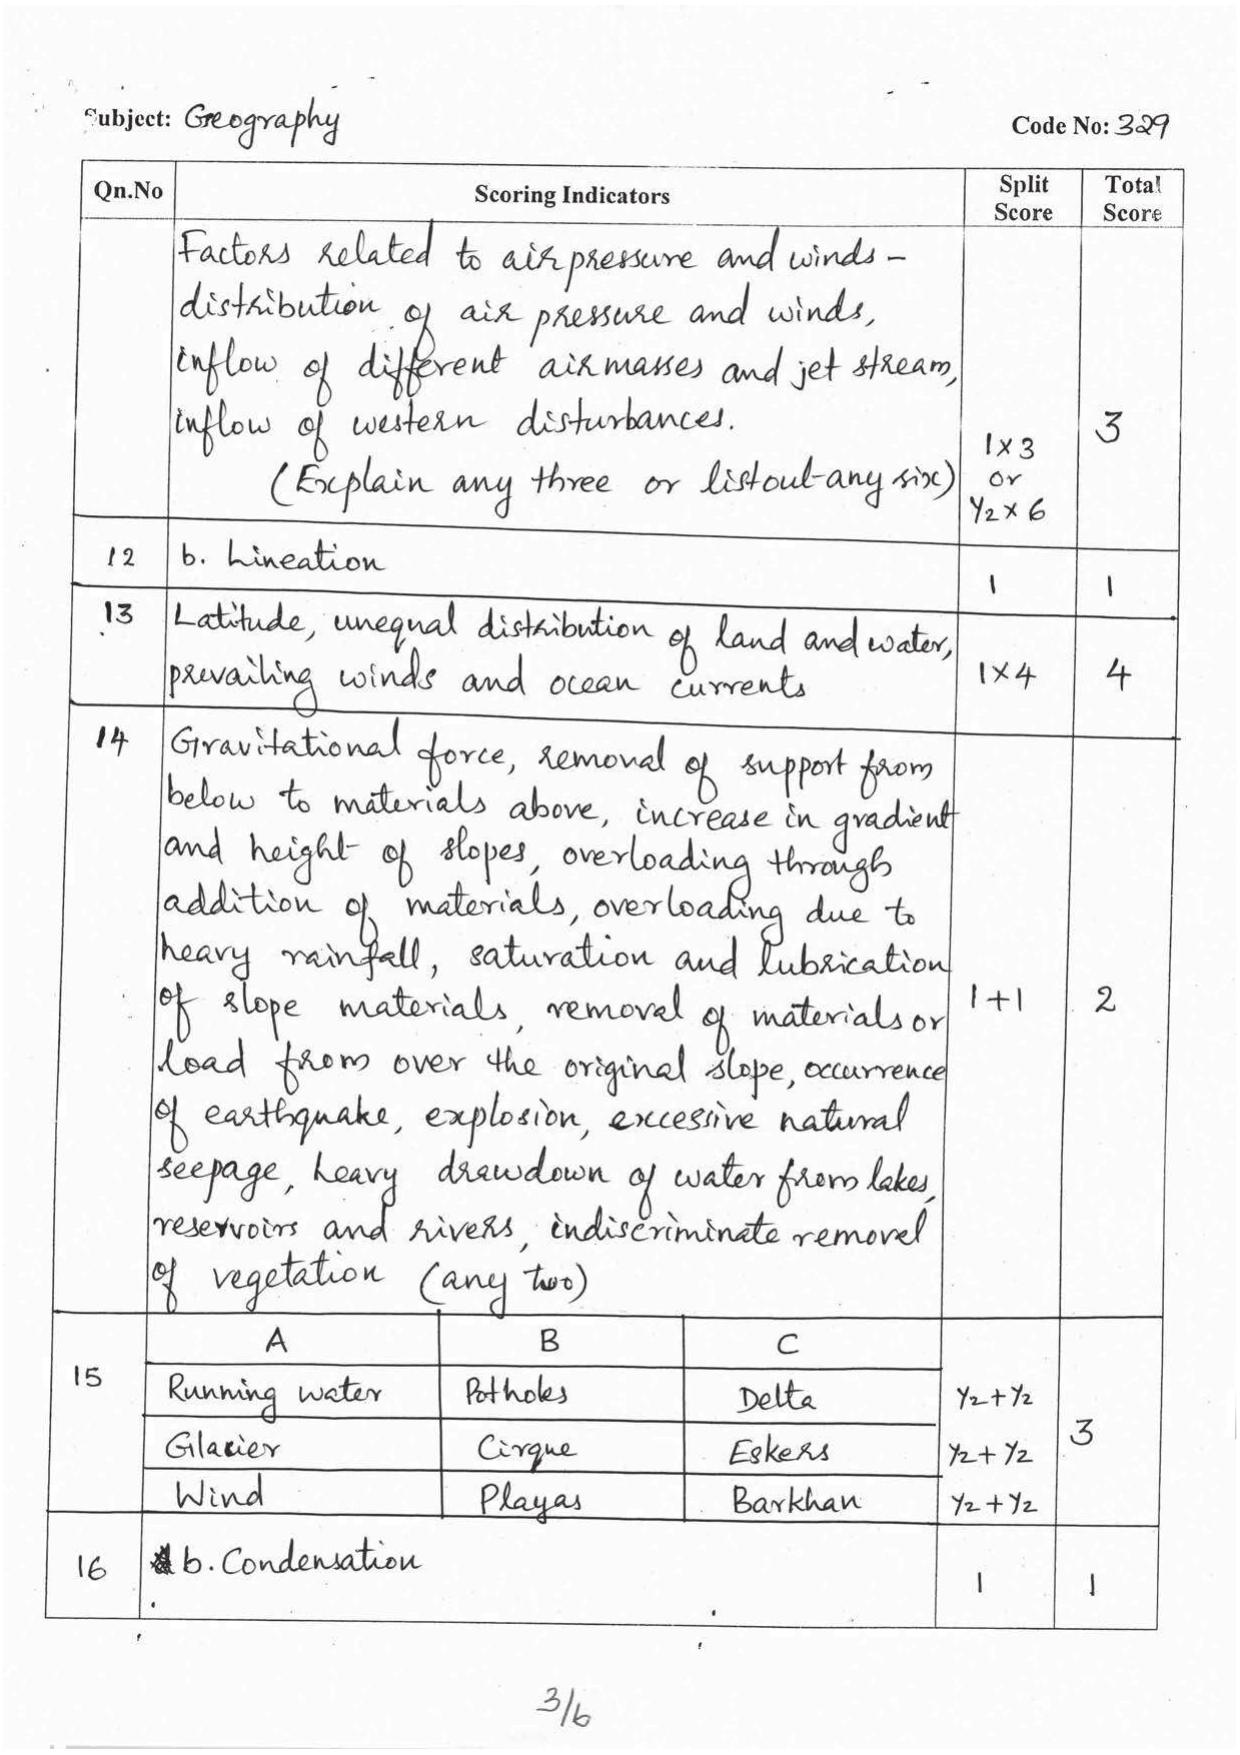 Subject: Geography
Code No: 329
Qn.No Scoring Indicators Split Score Total Score
Factors related to air pressure and winds -
distribution of air pressure and winds,
inflow of different airmasses and jet stream,
inflow of western disturbances.
(Explain any three or listout any six)
1×3
or
½×6
3
12 b. Lineation 1 1
13 Latitude, unequal distribution of land and water,
prevailing winds and ocean currents
1×4 4
14 Gravitational force, removal of support from
below to materials above, increase in gradient
and height of slopes, overloading through
addition of materials, overloading due to
heavy rainfall, saturation and lubrication
of slope materials, removal of materials or
load from over the original slope, occurrence
of earthquake, explosion, excessive natural
seepage, heavy drawdown of water from lakes,
reservoirs and rivers, indiscriminate removel
of vegetation (any two)
1+1 2
A B C
15
Running water Potholes Delta ½+½
Glacier Cirque Eskers ½+½
3
Wind Playas Barkhan ½+½
16 b. Condensation 1 1
3/6